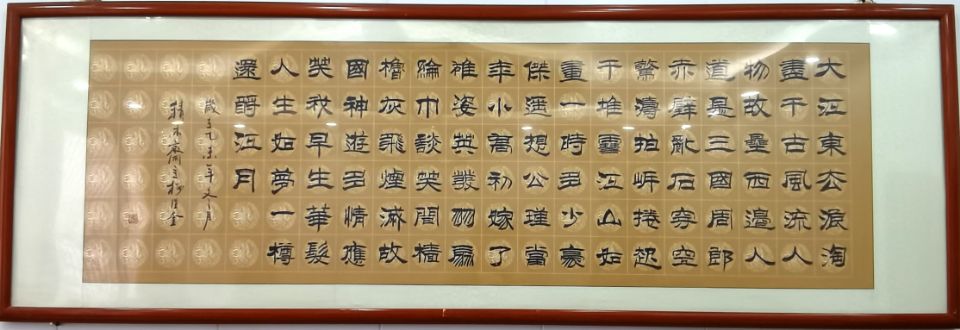 大江東去浪淘
盡千古風流人
物故壘西邊人
道是三國周郎
赤壁亂石穿空
驚濤拍岸捲起
千堆雪江山如
畫一時多少豪
傑遥想公瑾當
年小喬初嫁了
雄姿英發羽扇
綸巾談笑間檣
櫓灰飛煙滅故
國神遊多情應
笑我早生華髮
人生如夢一樽
還酹江月
歲在乙未年冬月